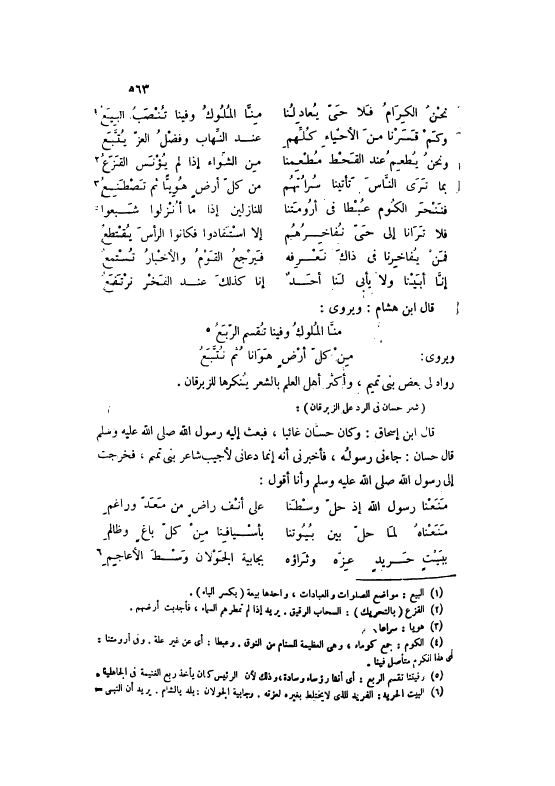 ٥٦٣
نحن الكِرَامُ فلا حَىّ يُعادِلُنا منَّا المُلوكُ وفينا تُنْصَبُ البِيَعُ ١
وكمْ قَسَرْنا منَ الأحْياءِ كُلِّهِمِ عند النِّهابِ وفضْلُ العزّ يُتَّبَعُ
ونحنُ يُطْعِمُ عند القَحْطِ مُطْعِمُنا من الشِّواء إذا لم يُؤْنَسِ القَزَعُ ٢
بما تَرَى النَّاسَ تأتينا سُراتُهُم من كلّ أرضٍ هُوِيًّا ثم تَصْطَنِعُ ٣
فننْحَرُ الكُومَ عُبْطا فى أَرُومَتنا للنازلين إذا ما أُنزلوا شَبِعوا ٤
فلا تَرَانا إلى حَىّ نُفاخِرُهُم إلا اسْتفادوا فكانوا الرأسَ يُقْتَطَعُ
فمَنْ يُفاخِرنا فى ذاكَ نَعْرِفه فيَرْجعُ القَوْمُ والأخْبارُ تُسْتَمَعُ
إنَّا أبَيْنا ولا يأْبى لنا أحَدٌ إنا كذلكَ عند الفَخْرِ نرْتَفعُ
قال ابن هشام : ويروى :
منَّا الملوكُ وفينا تُقسم الرِّبَعُ ٥
ويروى: مِنْ كلّ أرْضٍ هَوَانا ثم نُتَّبَعُ
رواه لى بعض بنى تميم ، وأكثر أهل العلم بالشعر يُنكرها للزبرقان .
( شعر حسان فى الرد على الزبرقان ) :
قال ابن إسحاق : وكان حسَّان غائبا ، فبعث إليه رسول الله صلى الله عليه وسلم
قال حسان : جاءنى رسولُه ، فأخبرنى أنه إنما دعانى لأجيب شاعر بنى تميم ، فخرجت
إلى رسول الله صلى الله عليه وسلم وأنا أقول :
مَنَعْنا رسولَ الله إذ حلّ وسْطَنا على أنْف راضٍ من مَعَدّ وراغمِ
مَنَعْناهُ لمَّا حلّ بين بُيُوتنا بأسْيافنا مِنْ كلّ باغٍ وظالمِ
ببَيْتٍ حَرِيدٍ عِزّه وثَراؤه بجابية الجَوْلان وَسْطَ الأعاجِمِ ٦
(١) البيع : مواضع للصلوات والعبادات ، واحدها بيعة (بكسر الباء) .
(٢) القزع ( بالتحريك ) : السحاب الرقيق . يريد إذا لم تمطرهم السماء ، فأجدبت أرضهم .
(٣) هويا : سراعا .
(٤) الكوم : جمع كوماء ، وهى العظيمة السنام من النوق . وعبطا : أى عن غير علة . وفى أرومتنا :
أى هذا الكرم متأصل فينا .
(٥) وفينا تقسم الربع : أى أننا رؤساء وسادة ، وذلك لأن الرئيس كان يأخذ ربع الغنيمة فى الجاهلية .
(٦) البيت الحريد : الفريد الذى لا يختلط بغيره لعزته . وجابية الجولان : بلد بالشام . يريد أن النبى =